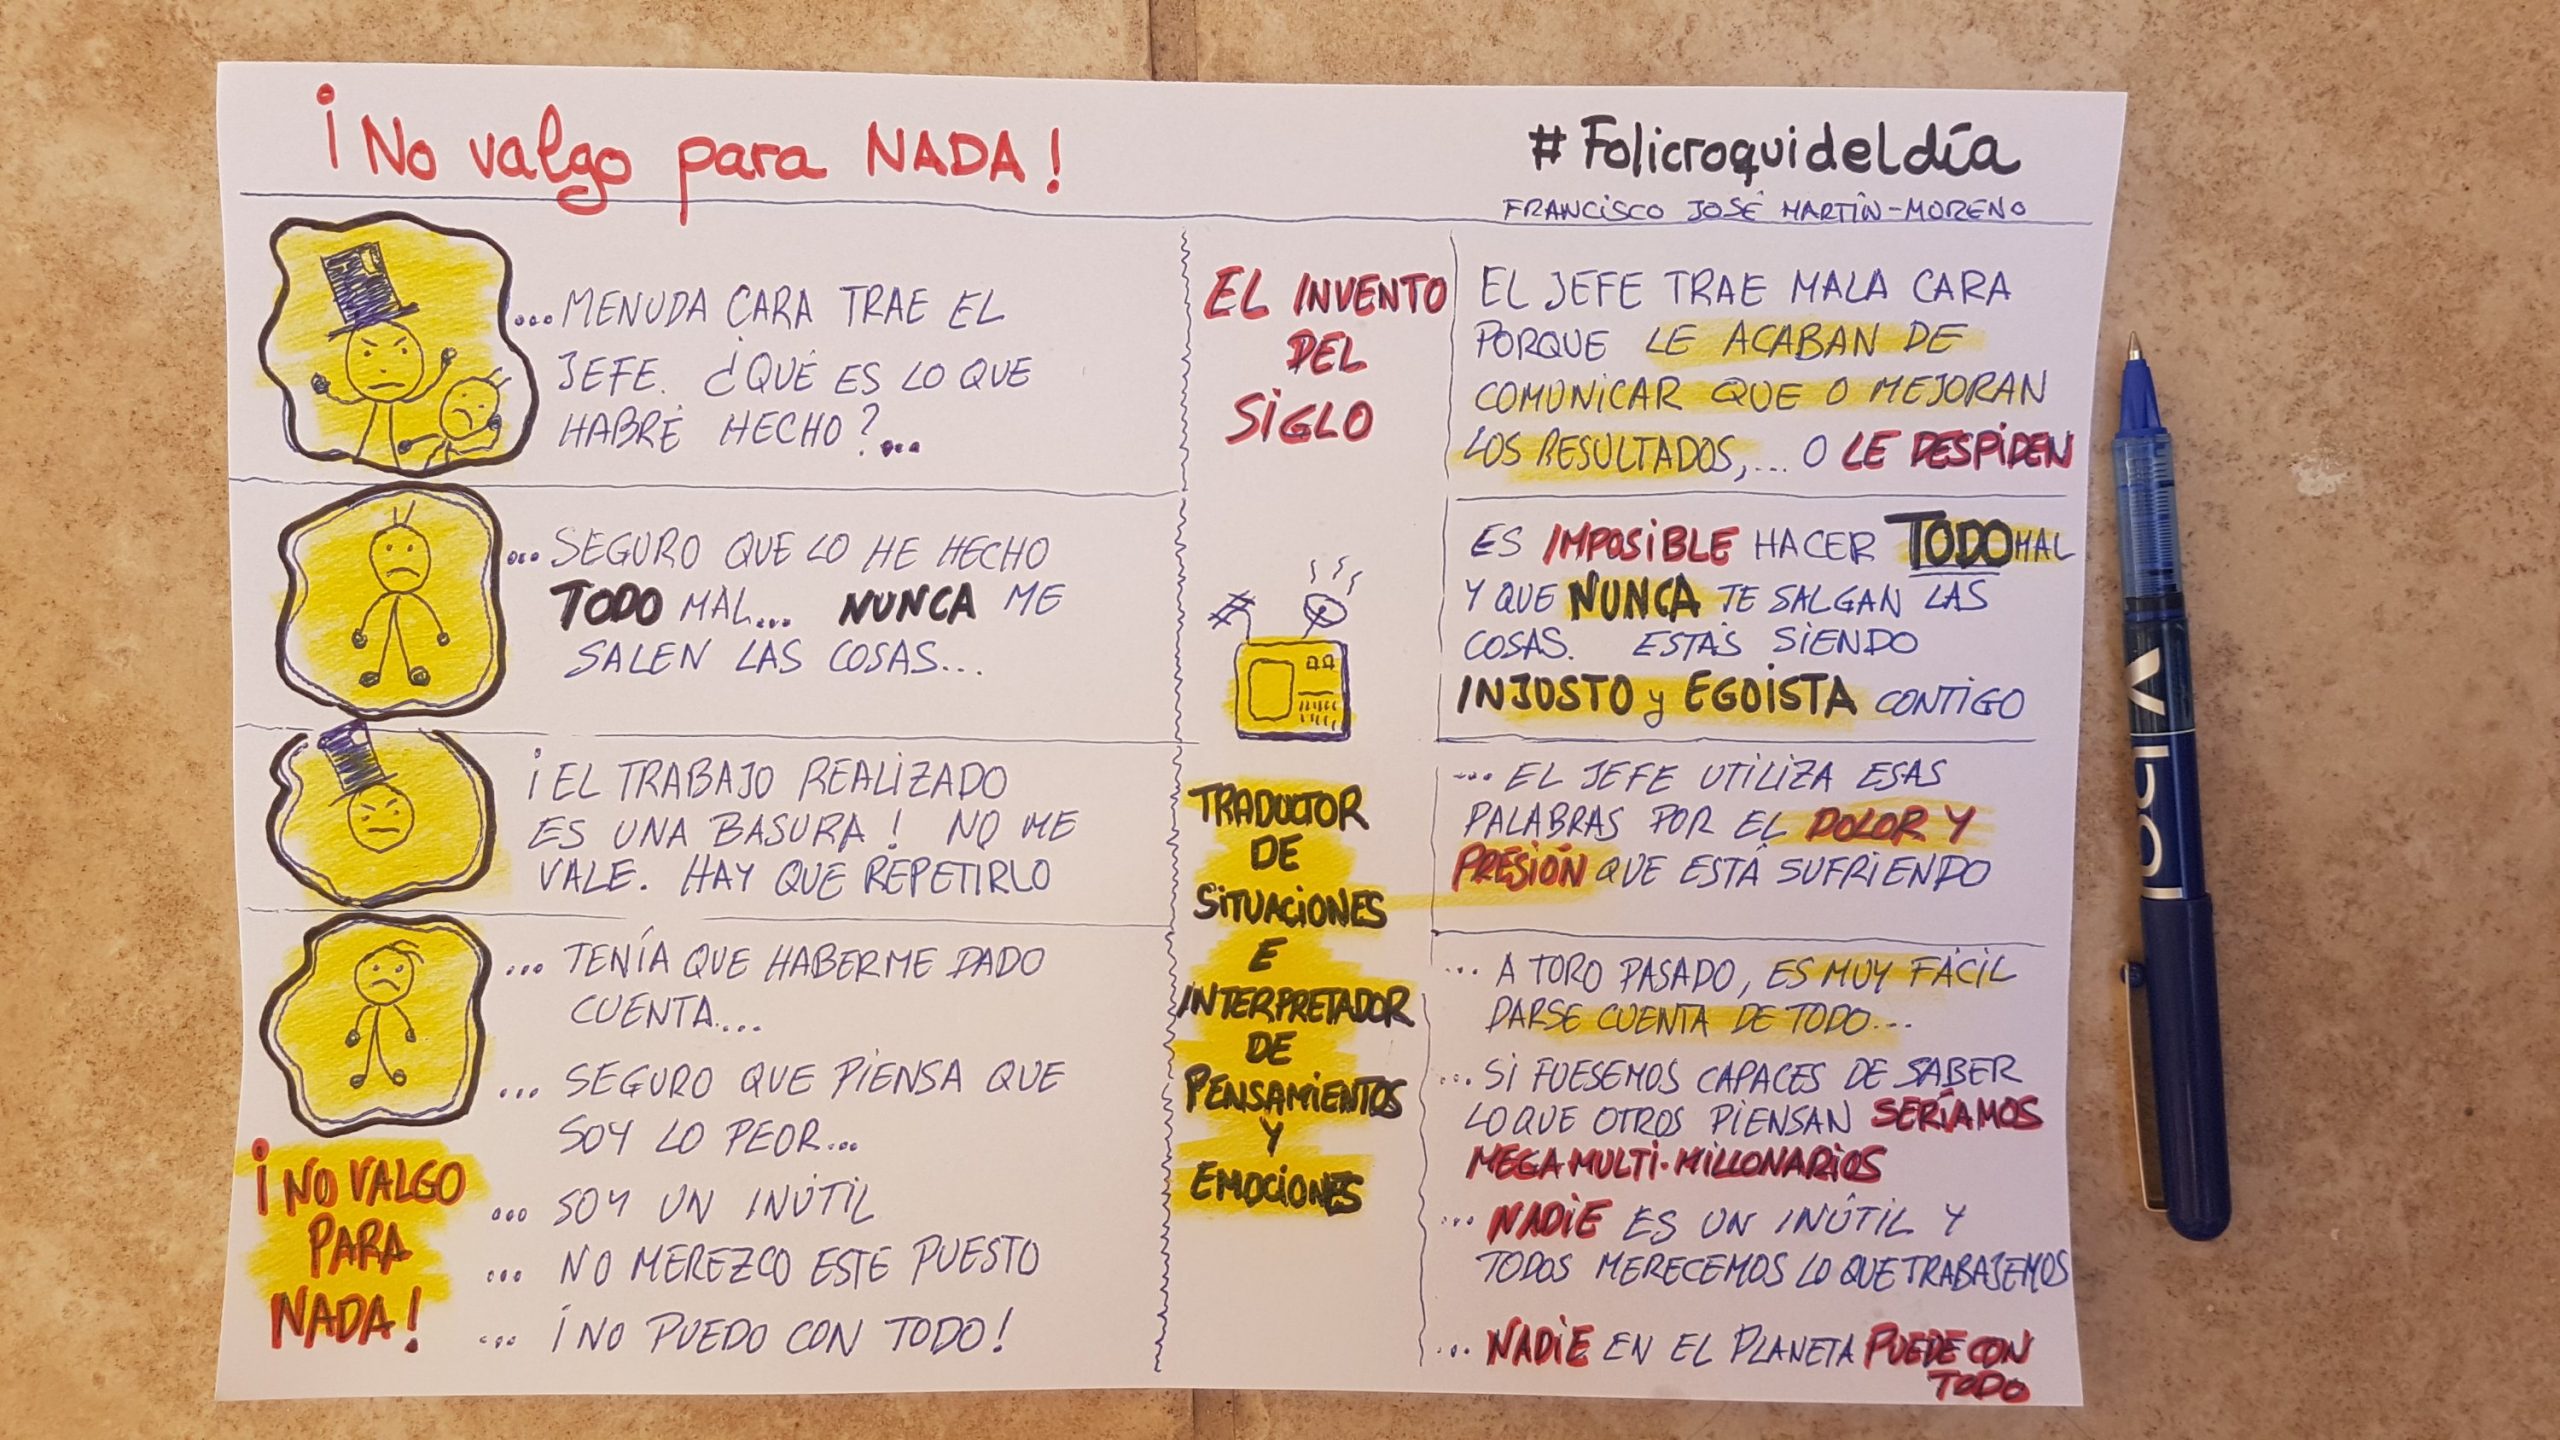 ¡No valgo para NADA!
#Folicroquideldía
FRANCISCO JOSÉ MARTÍN-MORENO
...MENUDA CARA TRAE EL
JEFE. ¿QUÉ ES LO QUE
HABRÉ HECHO?...
...SEGURO QUE LO HE HECHO
TODO MAL... NUNCA ME
SALEN LAS COSAS...
¡EL TRABAJO REALIZADO
ES UNA BASURA! NO ME
VALE. HAY QUE REPETIRLO
... TENÍA QUE HABERME DADO
CUENTA...
... SEGURO QUE PIENSA QUE
SOY LO PEOR...
... SOY UN INÚTIL
... NO MEREZCO ESTE PUESTO
... ¡NO PUEDO CON TODO!
¡NO VALGO
PARA
NADA!
EL INVENTO
DEL
SIGLO
TRADUCTOR
DE
SITUACIONES
E
INTERPRETADOR
DE
PENSAMIENTOS
Y
EMOCIONES
EL JEFE TRAE MALA CARA
PORQUE LE ACABAN DE
COMUNICAR QUE O MEJORAN
LOS RESULTADOS,... O LE DESPIDEN
ES IMPOSIBLE HACER TODO MAL
Y QUE NUNCA TE SALGAN LAS
COSAS. ESTÁS SIENDO
INJUSTO y EGOISTA CONTIGO
... EL JEFE UTILIZA ESAS
PALABRAS POR EL DOLOR Y
PRESIÓN QUE ESTÁ SUFRIENDO
... A TORO PASADO, ES MUY FÁCIL
DARSE CUENTA DE TODO...
... SI FUESEMOS CAPACES DE SABER
LO QUE OTROS PIENSAN SERÍAMOS
MEGA MULTI-MILLONARIOS
... NADIE ES UN INÚTIL Y
TODOS MERECEMOS LO QUE TRABAJEMOS
... NADIE EN EL PLANETA PUEDE CON
TODO
VBall